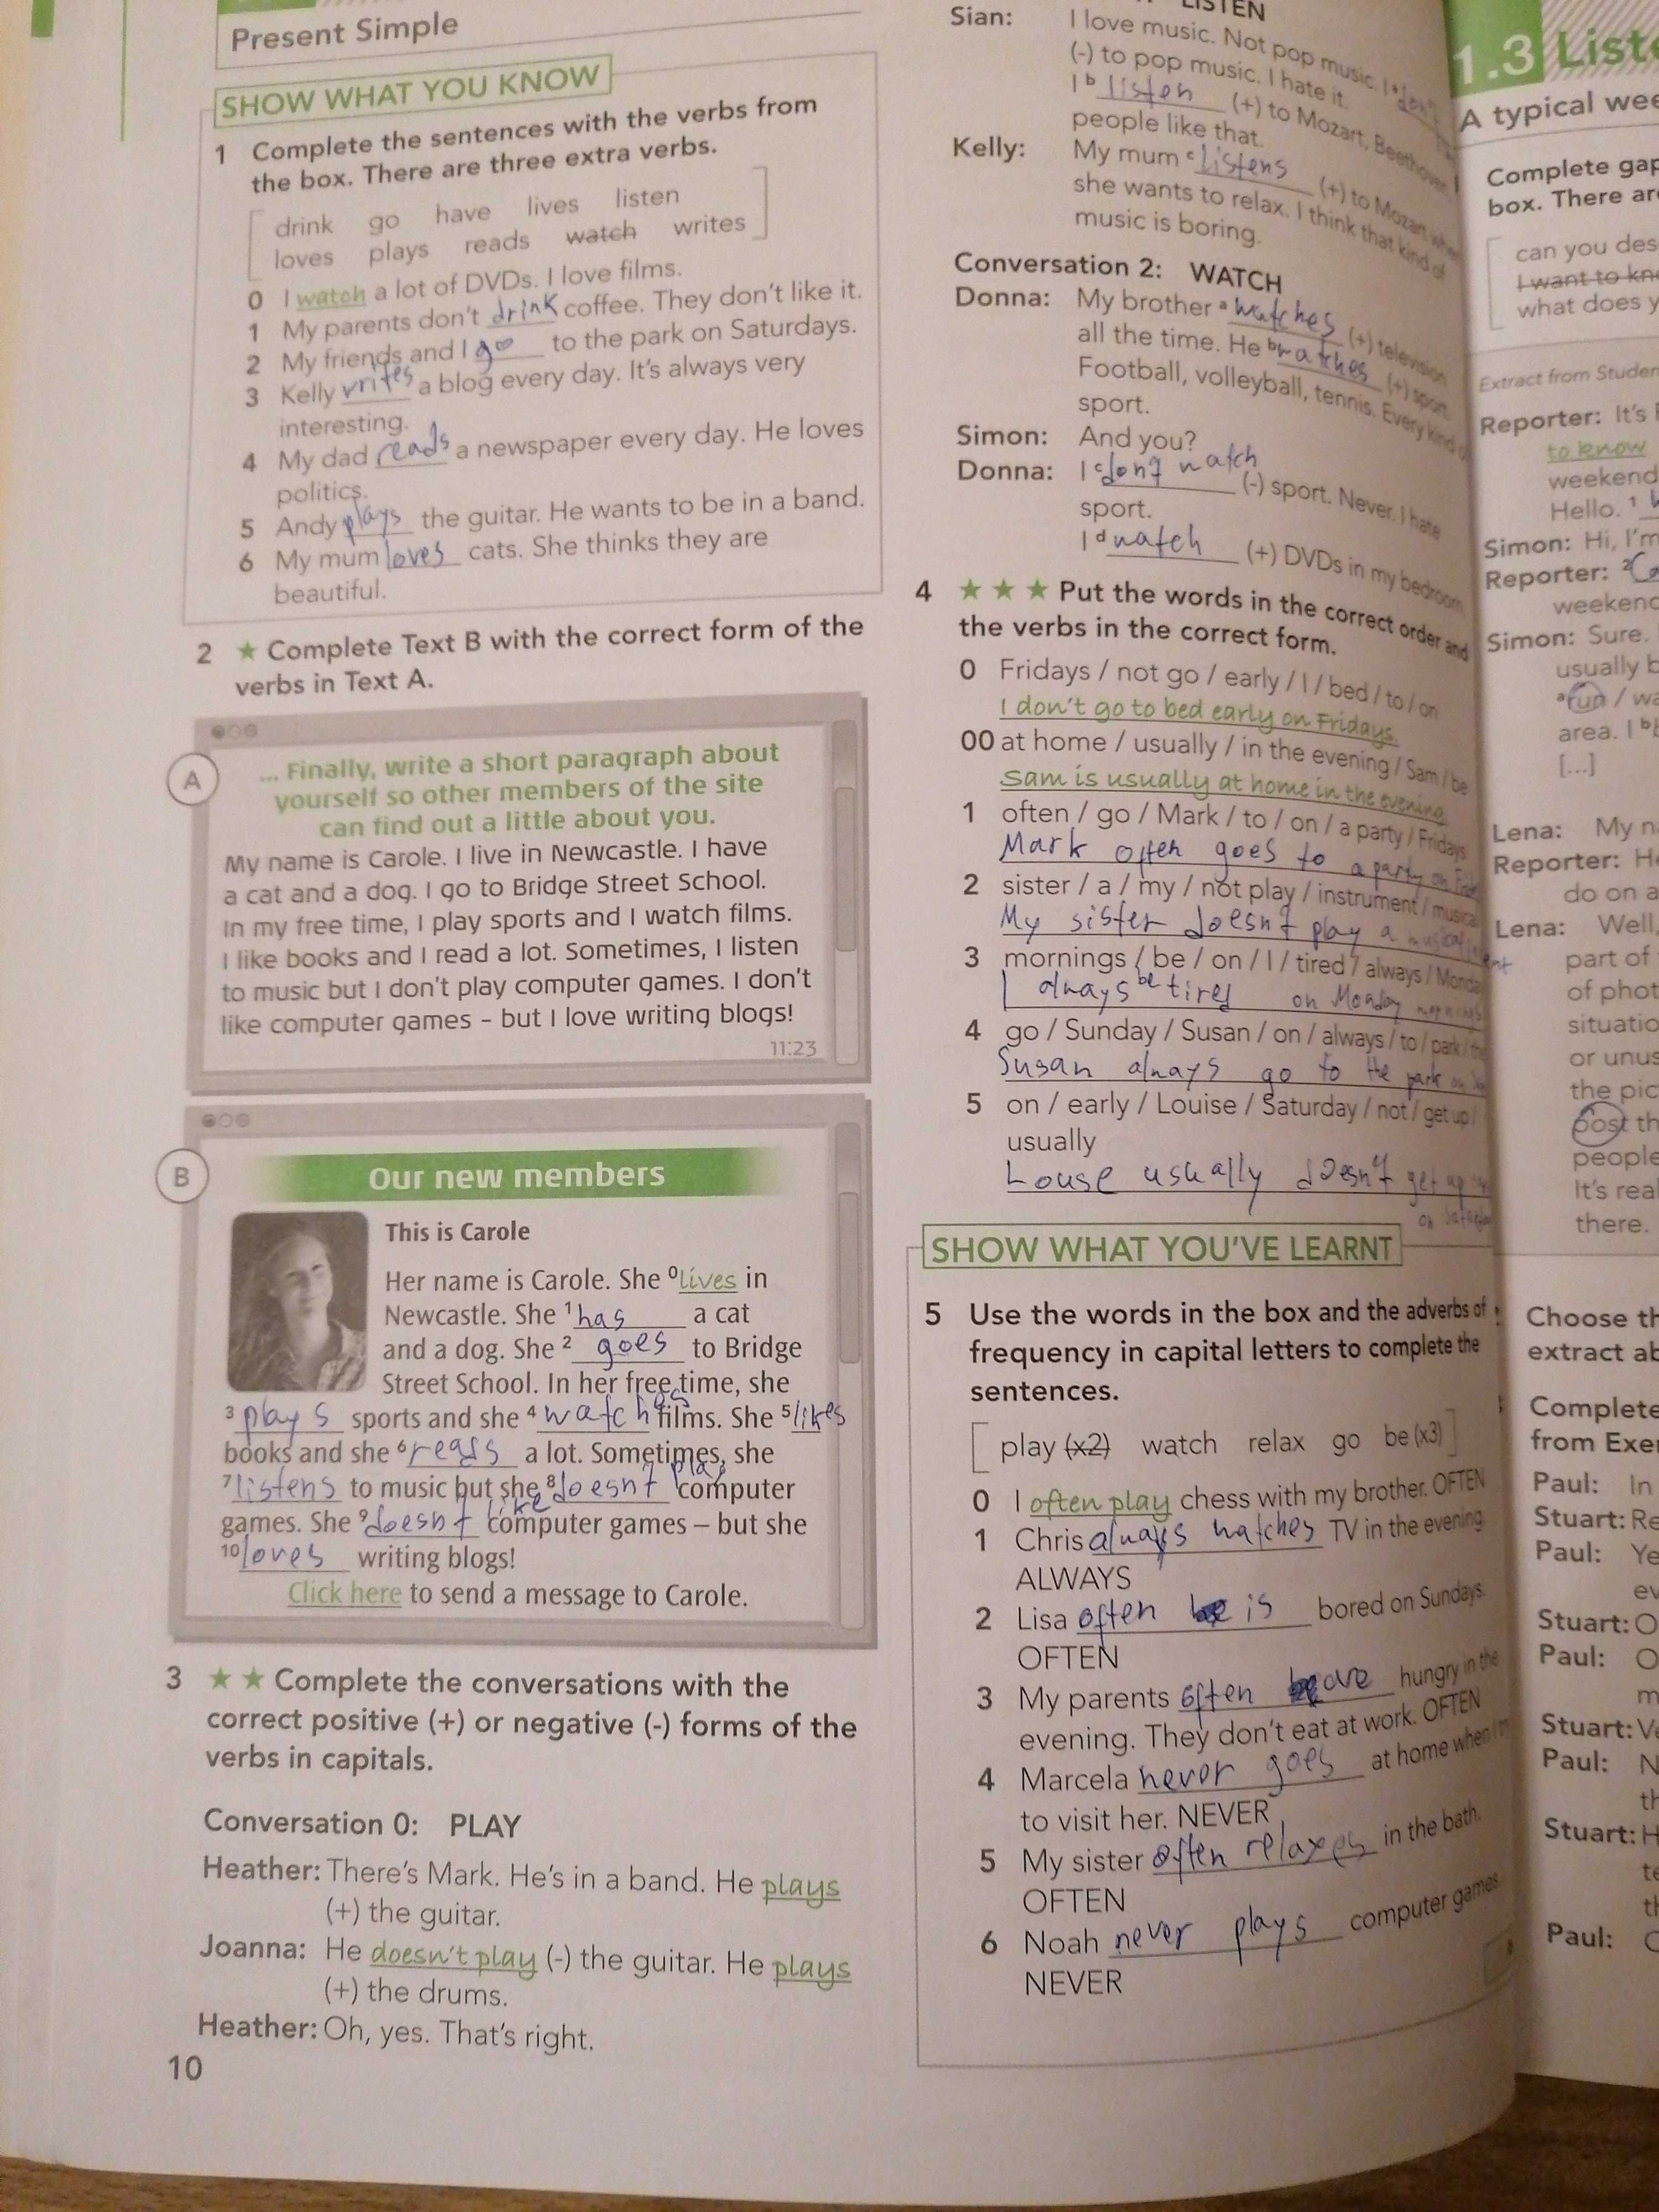 Present Simple
SHOW WHAT YOU KNOW
1 Complete the sentences with the verbs from
the box. There are three extra verbs.
drink go have lives listen
loves plays reads watch writes
0 I watch a lot of DVDs. I love films.
1 My parents don't drink coffee. They don't like it.
2 My friends and I go to the park on Saturdays.
3 Kelly writes a blog every day. It's always very
interesting.
4 My dad reads a newspaper every day. He loves
politics.
5 Andy plays the guitar. He wants to be in a band.
6 My mum loves cats. She thinks they are
beautiful.
2 ★ Complete Text B with the correct form of the
verbs in Text A.
A
... Finally, write a short paragraph about
yourself so other members of the site
can find out a little about you.
My name is Carole. I live in Newcastle. I have
a cat and a dog. I go to Bridge Street School.
In my free time, I play sports and I watch films.
I like books and I read a lot. Sometimes, I listen
to music but I don't play computer games. I don't
like computer games – but I love writing blogs!
11:23
B
Our new members
This is Carole
Her name is Carole. She 0 lives in
Newcastle. She 1 has a cat
and a dog. She 2 goes to Bridge
Street School. In her free time, she
3 plays sports and she 4 watches films. She 5 likes
books and she 6 reads a lot. Sometimes, she
7 listens to music but she 8 doesn't play computer
games. She 9 doesn't like computer games – but she
10 loves writing blogs!
Click here to send a message to Carole.
3 ★ ★ Complete the conversations with the
correct positive (+) or negative (-) forms of the
verbs in capitals.
Conversation 0: PLAY
Heather: There's Mark. He's in a band. He plays
(+) the guitar.
Joanna: He doesn't play (-) the guitar. He plays
(+) the drums.
Heather: Oh, yes. That's right.
10
LISTEN
Sian: I love music. Not pop music. I a don't
(-) to pop music. I hate it.
I b listen (+) to Mozart, Beethoven,
people like that.
Kelly: My mum c listens (+) to Mozart when
she wants to relax. I think that kind of
music is boring.
Conversation 2: WATCH
Donna: My brother a watches (+) television
all the time. He b watches (+) sport.
Football, volleyball, tennis. Every kind of
sport.
Simon: And you?
Donna: I c don't watch (-) sport. Never. I hate
sport.
I d watch (+) DVDs in my bedroom
4 ★ ★ ★ Put the words in the correct order and
the verbs in the correct form.
0 Fridays / not go / early / I / bed / to / on
I don't go to bed early on Fridays.
00 at home / usually / in the evening / Sam / be
Sam is usually at home in the evening.
1 often / go / Mark / to / on / a party / Fridays
Mark often goes to a party on
2 sister / a / my / not play / instrument / musical
My sister doesn't play a musical
3 mornings / be / on / I / tired / always / Monday
I always be tired on Monday mornings
4 go / Sunday / Susan / on / always / to / park / the
Susan always go to the park on
5 on / early / Louise / Saturday / not / get up /
usually
Louse usually doesn't get up
on
SHOW WHAT YOU'VE LEARNT
5 Use the words in the box and the adverbs of
frequency in capital letters to complete the
sentences.
play (x2) watch relax go be (x3)
0 I often play chess with my brother. OFTEN
1 Chris always watches TV in the evening.
ALWAYS
2 Lisa often is bored on Sundays.
OFTEN
3 My parents often are hungry in the
evening. They don't eat at work. OFTEN
4 Marcela never goes at home when I
to visit her. NEVER
5 My sister often relaxes in the bath.
OFTEN
6 Noah never plays computer games.
NEVER
1.3
A typical
Complete
box. There
can you
I want to
what does
Extract from
Reporter: It's
to know
weekend
Hello. 1
Simon: Hi, I'm
Reporter: 2
Simon: Sure.
usually
a run /
area. I b
[...]
Lena: My
Reporter:
do on a
Lena: Well,
part of
of
or
the
post
people
It's
there.
Choose
extract
Complete
from
Paul: In
Stuart:
Paul:
Stuart:
Paul:
Stuart:
Paul:
Stuart:
Paul: